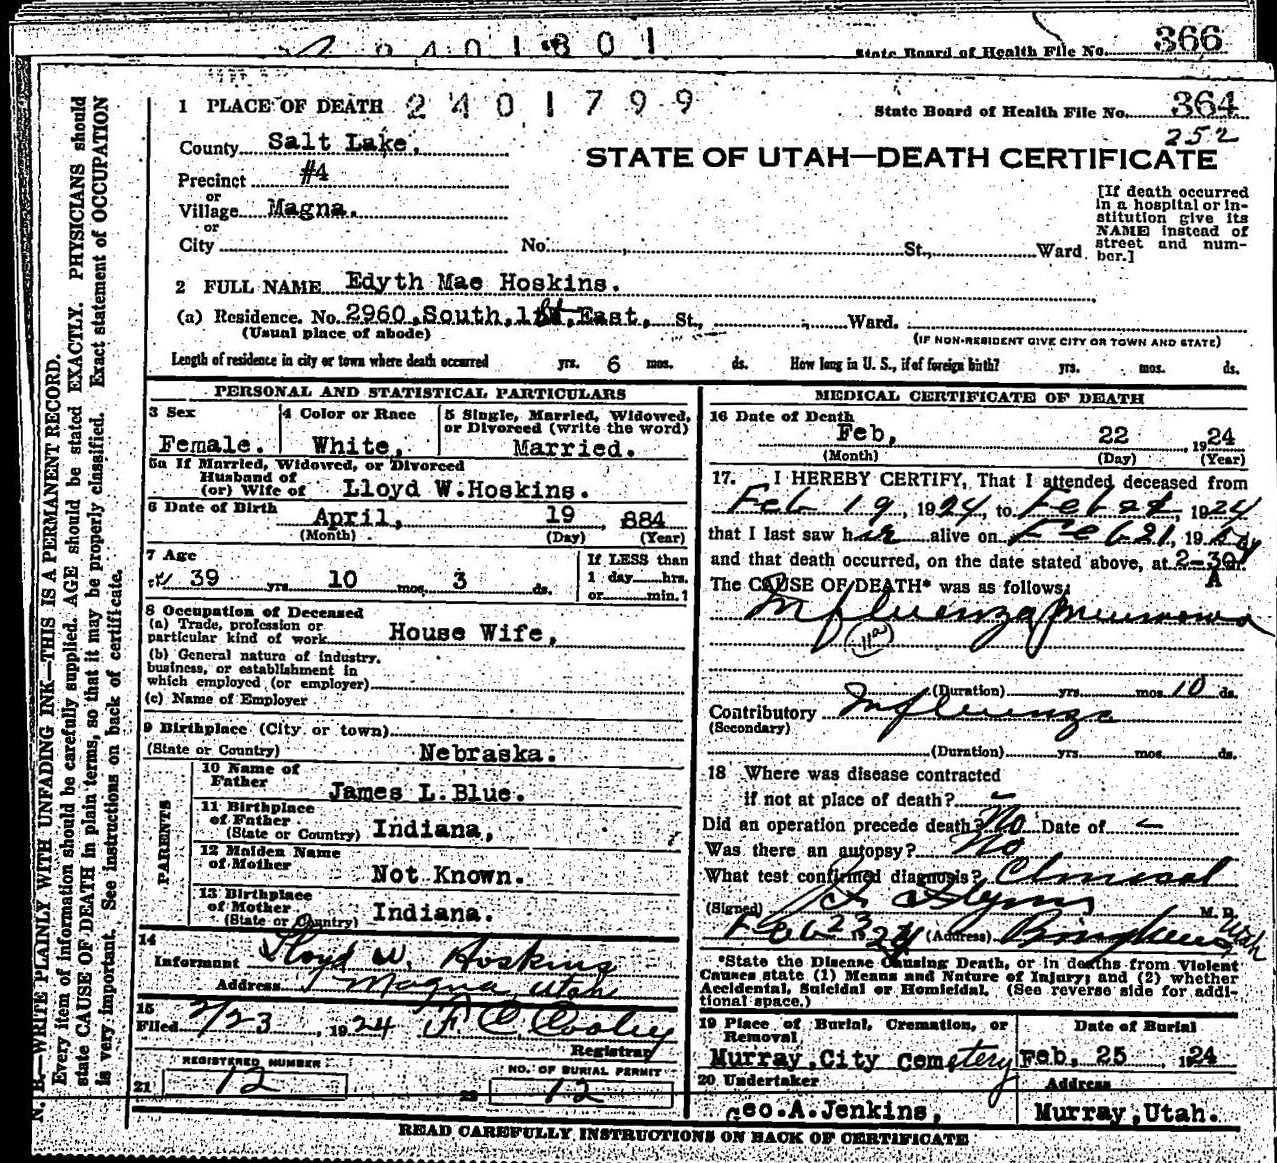 2401801
State Board of Health File No. 366
1 PLACE OF DEATH 2401799
State Board of Health File No. 364
252
County Salt Lake.
STATE OF UTAH—DEATH CERTIFICATE
Precinct #4
or
Village Magna.
or
City No. St., Ward
[If death occurred
in a hospital or in-
stitution give its
NAME instead of
street and num-
ber.]
2 FULL NAME Edyth Mae Hoskins.
(a) Residence. No. 2960, South, 1st, East, St., Ward.
(Usual place of abode) (IF NON-RESIDENT GIVE CITY OR TOWN AND STATE)
Length of residence in city or town where death occurred yrs. 6 mos. ds. How long in U. S., if of foreign birth? yrs. mos. ds.
PERSONAL AND STATISTICAL PARTICULARS
3 Sex
Female.
4 Color or Race
White,
5 Single, Married, Widowed,
or Divorced (write the word)
Married.
5a If Married, Widowed, or Divorced
Husband of
(or) Wife of Lloyd W. Hoskins.
6 Date of Birth
April, 19, 884
(Month) (Day) (Year)
7 Age
39 yrs. 10 mos. 3 ds.
If LESS than
1 day hrs.
or min.?
8 Occupation of Deceased
(a) Trade, profession or
particular kind of work House Wife,
(b) General nature of industry,
business, or establishment in
which employed (or employer)
(c) Name of Employer
9 Birthplace (City or town)
(State or Country) Nebraska.
PARENTS
10 Name of
Father James L. Blue.
11 Birthplace
of Father
(State or Country) Indiana,
12 Maiden Name
of Mother Not Known.
13 Birthplace
of Mother
(State or Country) Indiana.
14
Informant Lloyd W. Hoskins
Address Magna, Utah
15
Filed 2/23, 1924 F C Cooley
Registrar
REGISTERED NUMBER
21 12
NO. OF BURIAL PERMIT
22 12
MEDICAL CERTIFICATE OF DEATH
16 Date of Death
Feb, 22 1924
(Month) (Day) (Year)
17. I HEREBY CERTIFY, That I attended deceased from
Feb 19, 1924, to Feb 22, 1924
that I last saw her alive on Feb 21, 1924
and that death occurred, on the date stated above, at 2-30 A m.
The CAUSE OF DEATH* was as follows:
Influenza Pneumonia
11a
(Duration) yrs. mos. 10 ds.
Contributory Influenza
(Secondary)
(Duration) yrs. mos. ds.
18 Where was disease contracted
if not at place of death? –
Did an operation precede death? No Date of –
Was there an autopsy? No
What test confirmed diagnosis? Clinical
(Signed) M. D.
Feb 23 1924 (Address) Bingham, Utah
*State the Disease Causing Death, or in deaths from Violent
Causes state (1) Means and Nature of Injury; and (2) whether
Accidental, Suicidal or Homicidal. (See reverse side for addi-
tional space.)
19 Place of Burial, Cremation, or
Removal
Murray, City Cemetery
Date of Burial
Feb, 25 1924
20 Undertaker
Geo. A. Jenkins,
Address
Murray, Utah.
READ CAREFULLY INSTRUCTIONS ON BACK OF CERTIFICATE
N. B.—WRITE PLAINLY WITH UNFADING INK—THIS IS A PERMANENT RECORD.
Every item of information should be carefully supplied. AGE should be stated EXACTLY. PHYSICIANS should
state CAUSE OF DEATH in plain terms, so that it may be properly classified. Exact statement of OCCUPATION
is very important. See instructions on back of certificate.